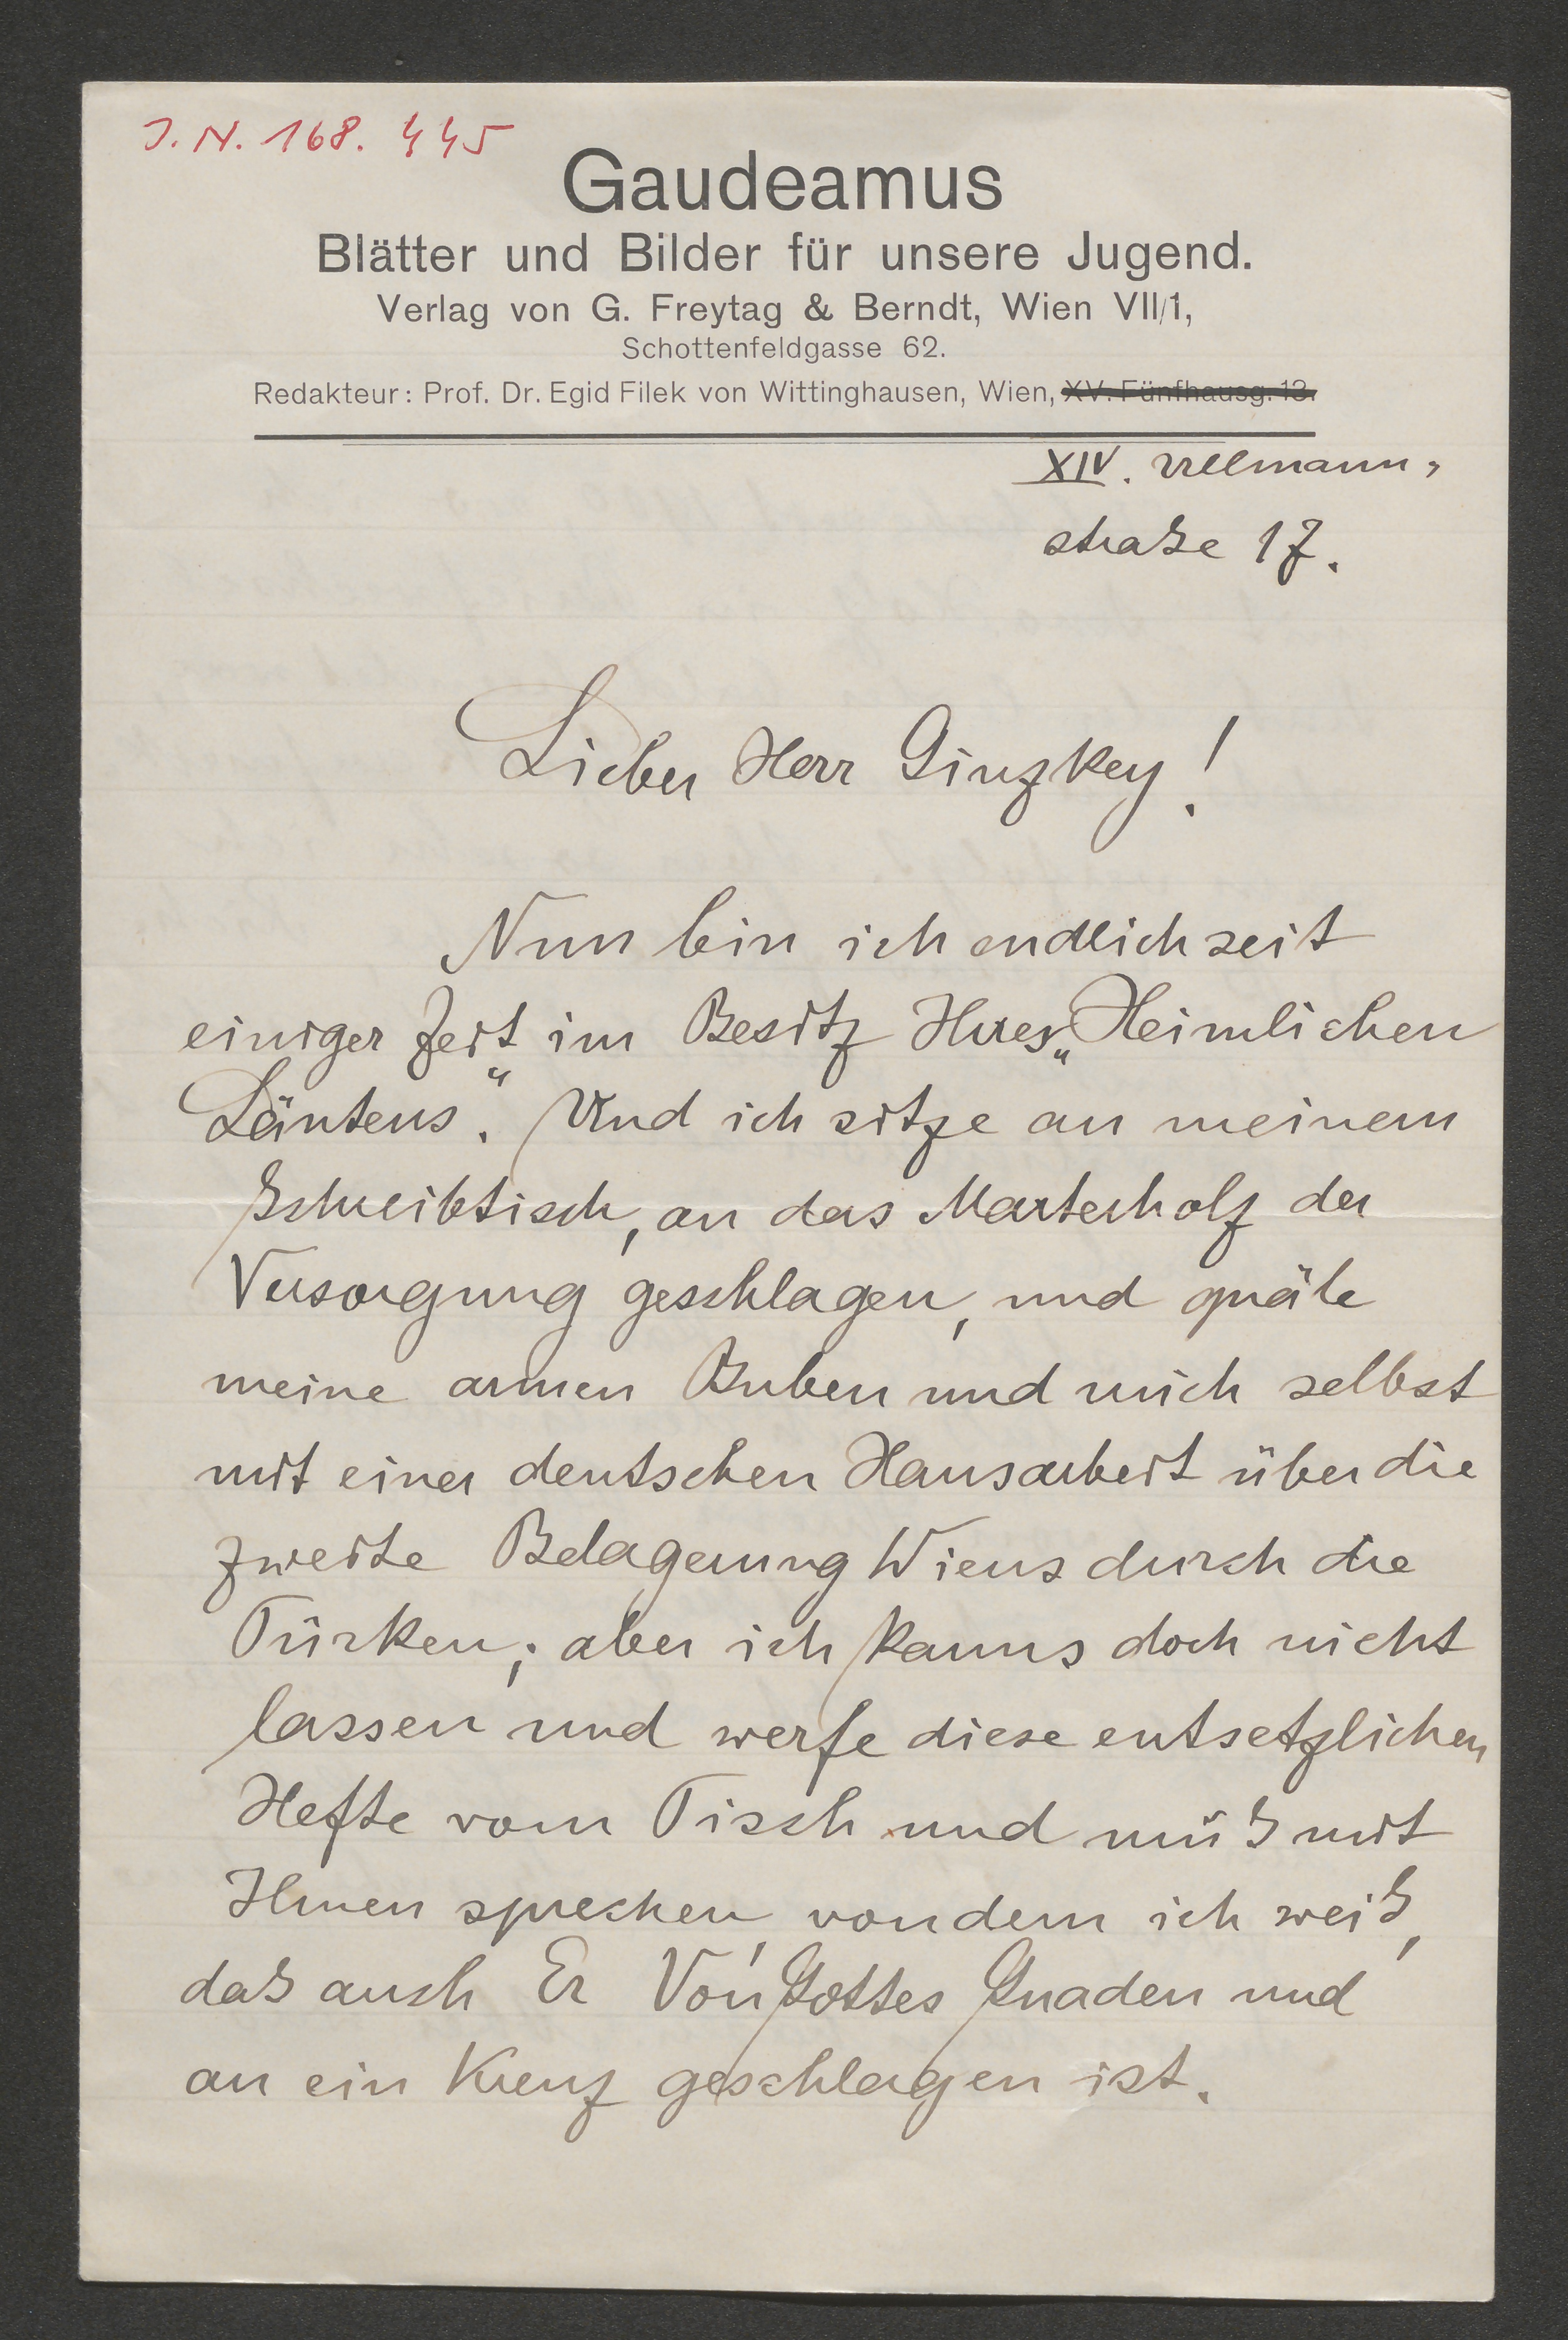 J. N. 168. 445
Gaudeamus
Blätter und Bilder für unsere Jugend.
Verlag von G. Freytag & Berndt, Wien VII/1,
Schottenfeldgasse 62.
Redakteur: Prof. Dr. Egid Filek von Wittinghausen, Wien, XV. Fünfhausg. 13.
XIV. Ullmann-
straße 17.
Lieber Herr Ginzkey!
Nun bin ich endlich seit
einiger Zeit im Besitz Ihres „Heimlichen
Läutens“. Und ich sitze an meinem
Schreibtisch, an das Marterholz der
Versorgung geschlagen, und quäle
meine armen Buben und mich selbst
mit einer deutschen Hausarbeit über die
zweite Belagerung Wiens durch die
Türken; aber ich kanns doch nicht
lassen und werfe diese entsetzlichen
Hefte vom Tisch und muß mit
Ihnen sprechen, von dem ich weiß,
daß auch Er Von Gottes Gnaden und
an ein Kreuz geschlagen ist.